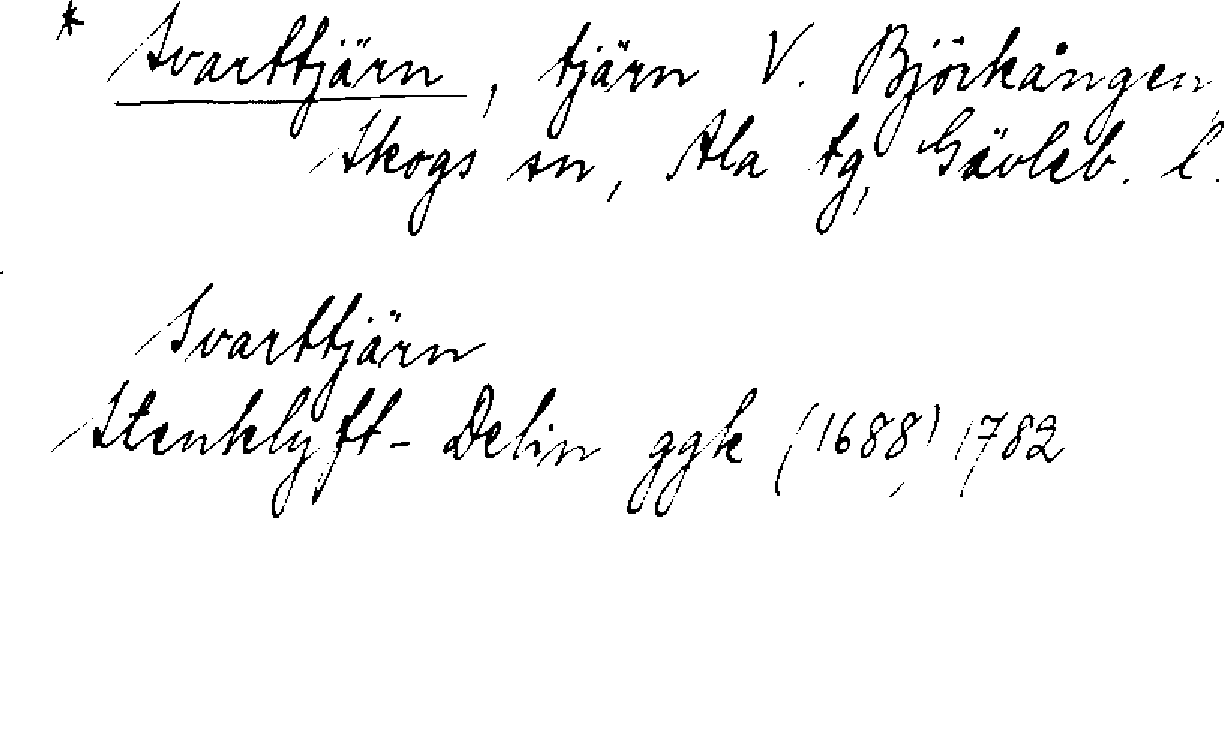 * Svarttjärn, tjärn V. Björkången,
Skogs sn, Ala tg, Gävleb. l.
Svarttjärn
Stenklyft- Delin ggk (1688), 1782